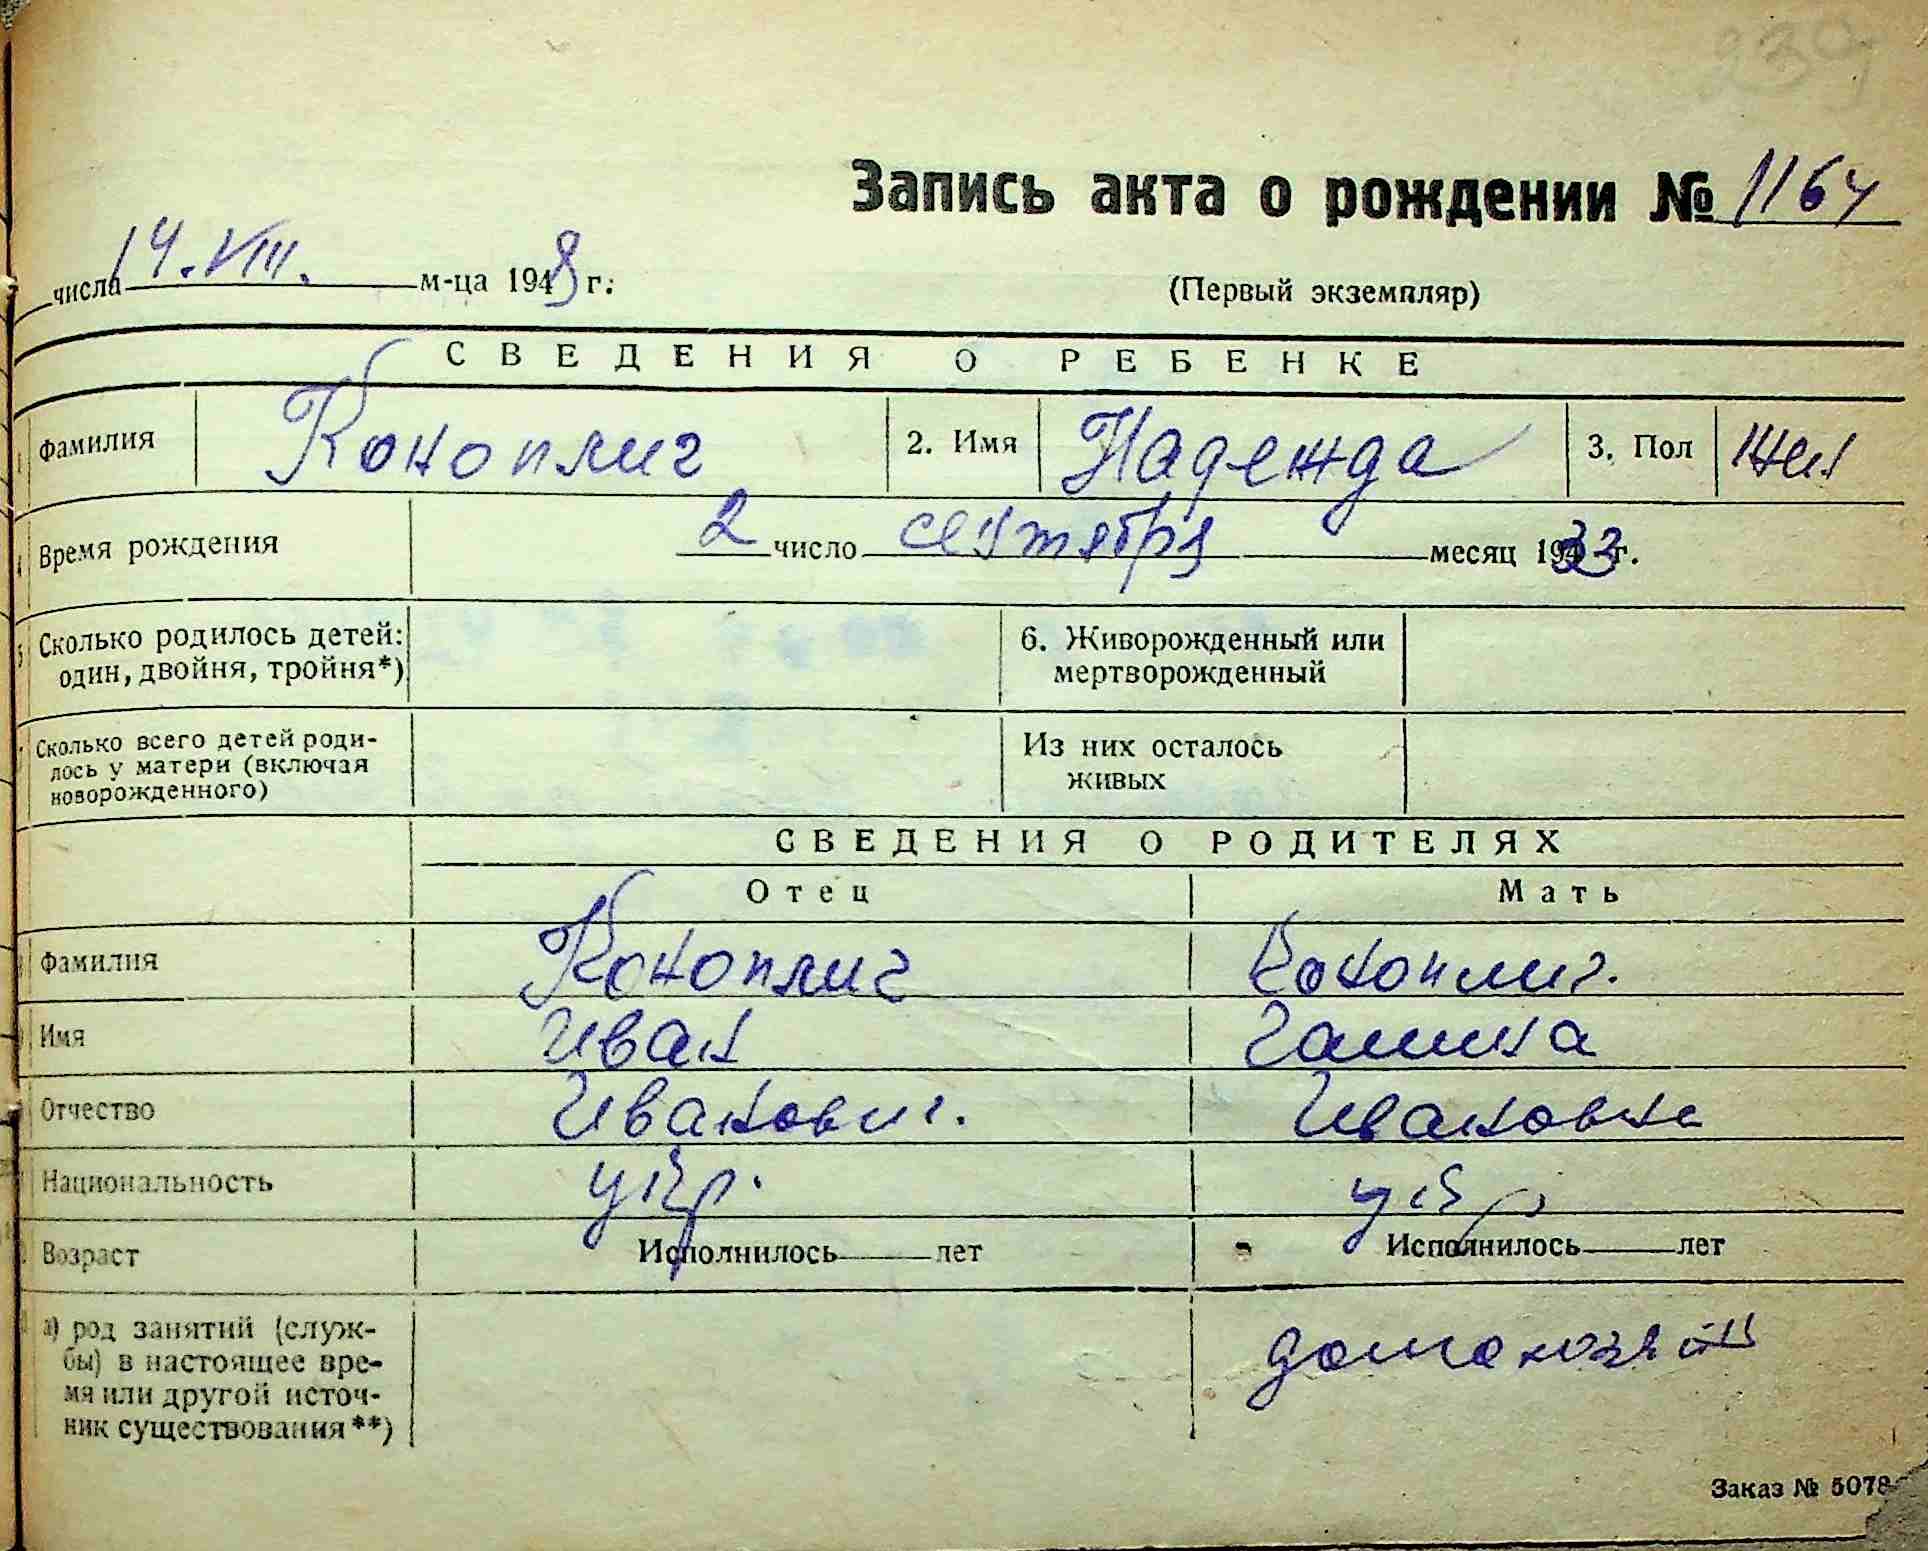 239
Запись акта о рождении № 1164
числа 14.VIII. м-ца 1948 г.
(Первый экземпляр)
СВЕДЕНИЯ О РЕБЕНКЕ
Фамилия Коноплич 2. Имя Надежда 3. Пол жен
Время рождения 2 число сентября месяц 1933 г.
Сколько родилось детей: один, двойня, тройня*)
6. Живорожденный или мертворожденный
Сколько всего детей роди-
лось у матери (включая
новорожденного)
Из них осталось
живых
СВЕДЕНИЯ О РОДИТЕЛЯХ
Отец Мать
Фамилия Коноплич Коноплич.
Имя Иван Галина
Отчество Иванович. Ивановна
Национальность укр. укр.
Возраст Исполнилось лет Исполнилось лет
а) род занятий (служ-
бы) в настоящее вре-
мя или другой источ-
ник существования**)
домохозяйк
Заказ № 5078